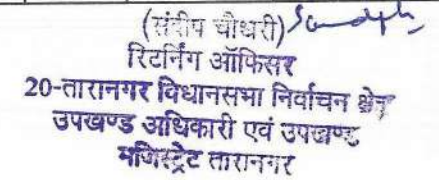 (संदीप चौधरी) Sandeep
रिटर्निंग ऑफिसर
20-तारानगर विधानसभा निर्वाचन क्षेत्र
उपखण्ड अधिकारी एवं उपखण्ड
मजिस्ट्रेट तारानगर